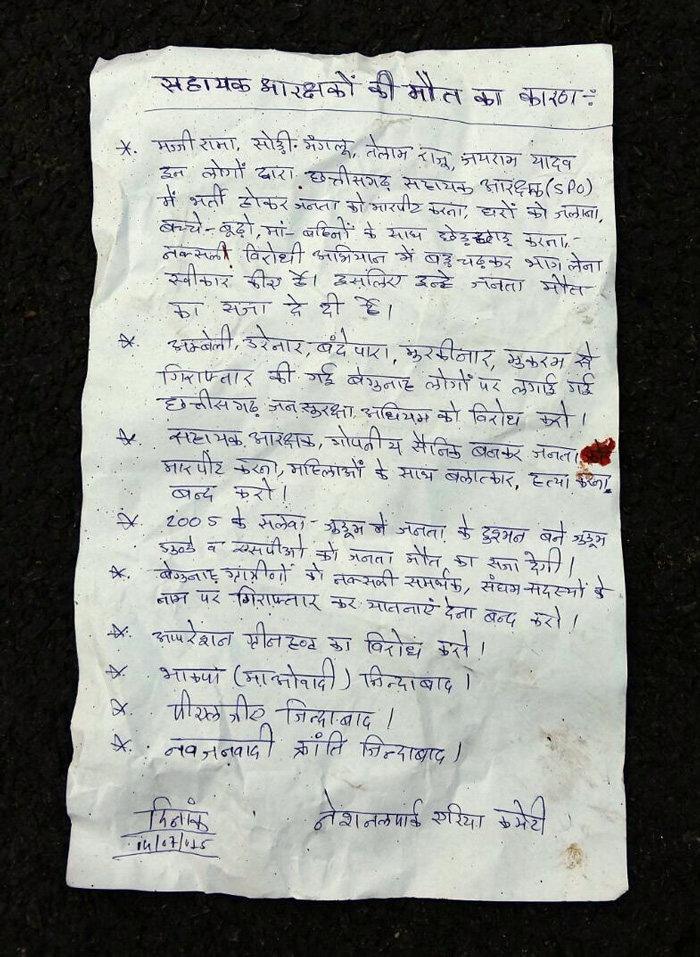 सहायक आरक्षकों की मौत का कारण :-
*. मज्जी रामा, सोड़ी मंगलू, तेलाम राजू, जयराम यादव
इन लोगों द्वारा छत्तीसगढ़ सहायक आरक्षक (SPO)
में भर्ती होकर जनता को मारपीट करना, घरों को जलाना,
बच्चे-बूढ़ो, मां-बहिनों के साथ छेड़छाड़ करना,-
नक्सली विरोधी अभियान में बढ़ चढ़कर भाग लेना
स्वीकार कीए हैं। इसलिए इन्हे जनता मौत
का सजा दे दी हैं।
*. अम्बेली, डरेनार, बंदेपारा, मुरकीनार, मुकरम से
गिराफ्तार की गई बेगुनाह लोगों पर लगाई गई
छत्तीसगढ़ जन सुरक्षा अधियम को विरोध करो।
*. सहायक आरक्षक, गोपनीय सैनिक बनकर जनता
मारपीट करना, महिलाओं के साथ बलात्कार, हत्या करना,
बन्द करो।
*. 2005 के सलवा-जुडूम में जनता के दुश्मन बने जुडूम
गुन्डे व एसपीओ को जनता मौत का सजा देगी।
*. बेगुनाह ग्रामीणों को नक्सली समर्थक, संघम सदस्यों के
नाम पर गिराफ्तार कर यातनाएं देना बन्द करो।
*. आपरेशन ग्रीनहण्ट का विरोध करो।
*. भाकपा (माओवादी) जिन्दाबाद।
*. पीएलजीए जिन्दाबाद।
*. नवजनवादी क्रांति जिन्दाबाद।
दिनांक नेशनलपार्क एरिया कमेटी
14/07/015